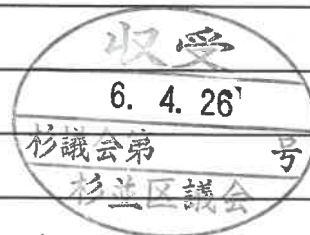 収受
6. 4. 26
杉議会第 号
杉並区議会